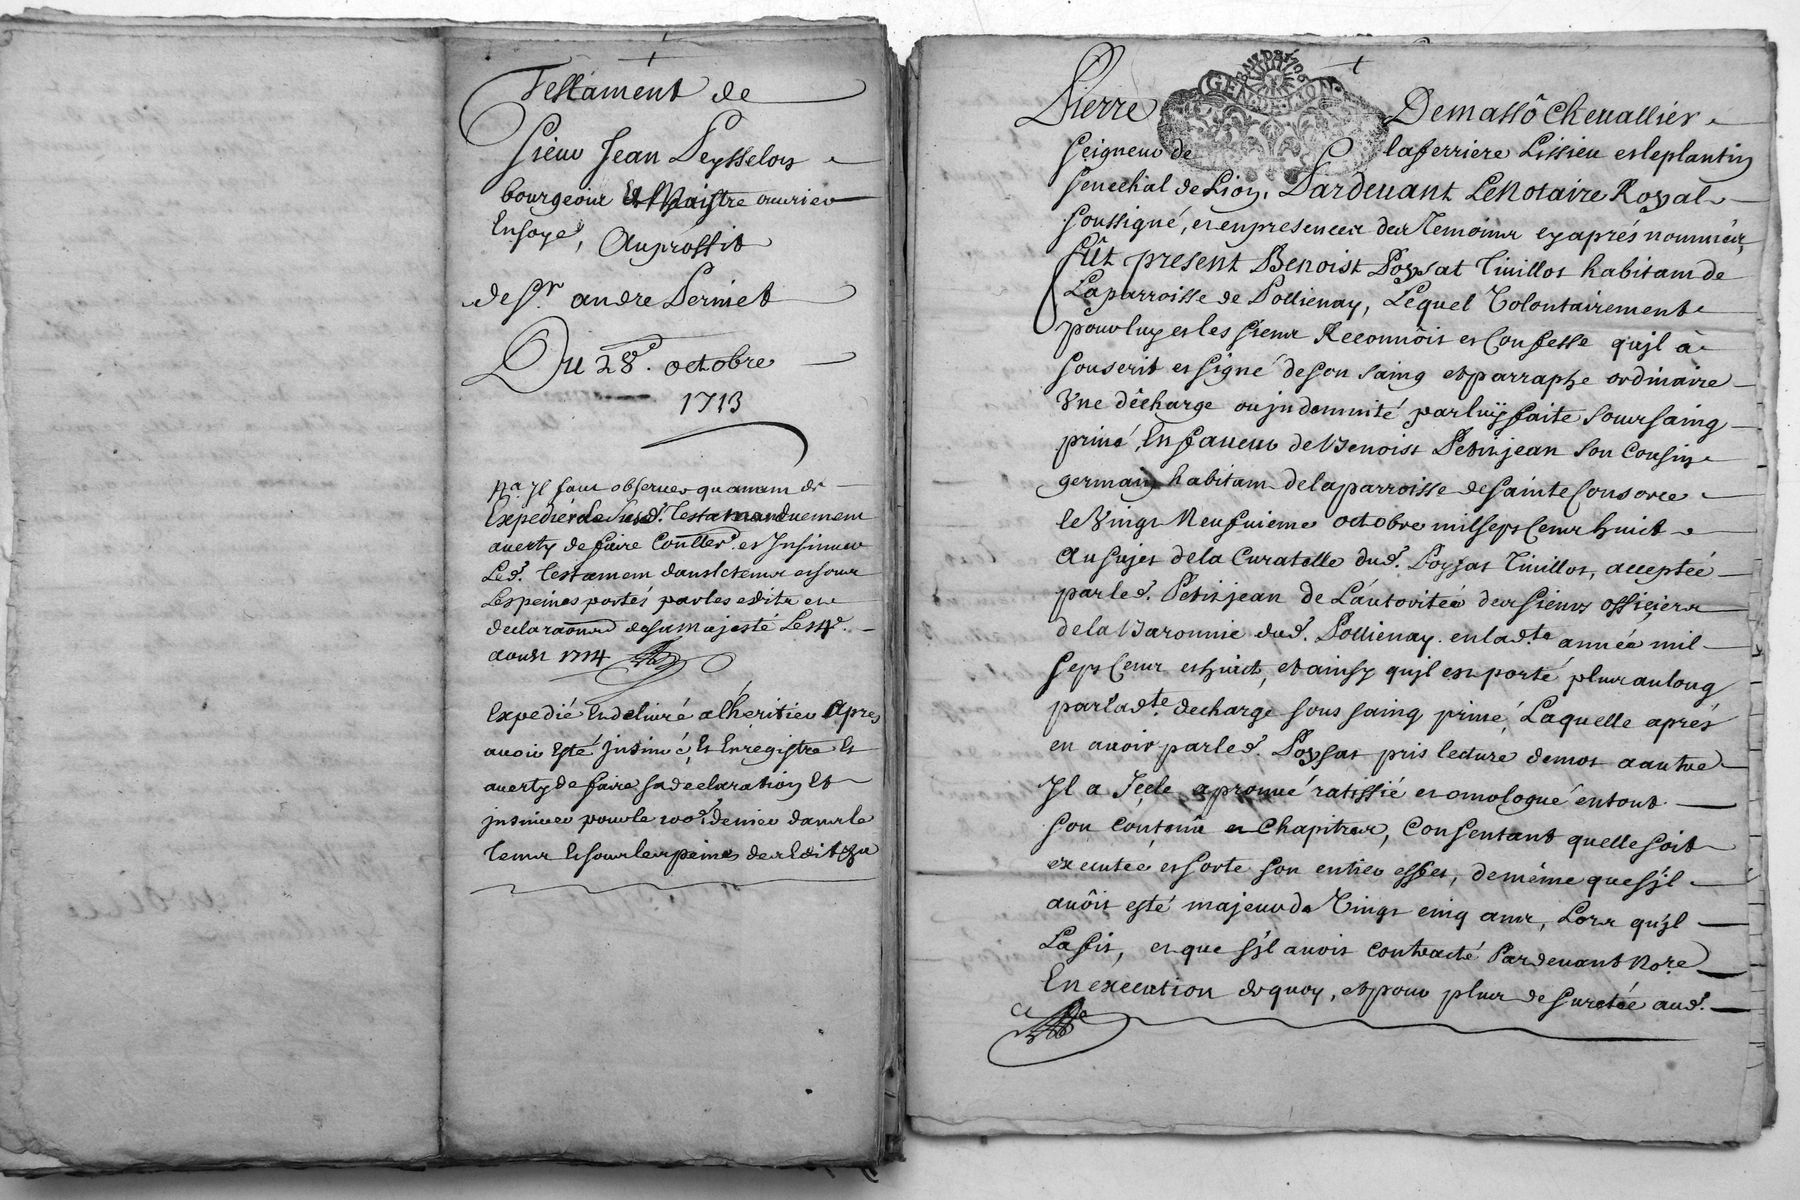 Testament de
Sieur Jean Peysselon
bourgeois Et Maistre ouvrier
En soye, Au proffit
de Sr. andre Perinet
Du 28e. octobre
1713
Na. Il faut observer quavant de
Expedier le susd. testament
averty de faire Conller. et Insinuer
Led. testament dans le temps et sous
Les peines portés par les edits et
declaraons de sa Majesté Le 14e.
aoust 1714
Expedié En delivré a lheritier Apres
avoir Esté Insinué, Et Enregistre Et
averty de faire sa declaration Et
insinuer pour le 100e. denier dans le
temps Et sous les peines des Edits
GEN. DE LION
Pierre Demassô Chevallier
Seigneur de laferriere Lissieu et leplantin
Senechal de Lion, Pardevant Le Notaire Royal
soussigné, et en presences des Temoins cy aprés nommés,
fût present Benoist Poysat Tivillos habitant de
La parroisse de Pollienay, Lequel Volontairement
pour luy et les siens Reconnôit et Confesse quil à
souscrit et signé de son saing et parraphe ordinaire
Vne décharge ou jndemnité par luy faite sous saing
privé, En faveur de Benoist Petitjean son Cousin
germain habitant de la parroisse de Sainte Consorce
le Vingt Neufvieme octobre mil sept Cent huit
Au sujet de la Curatelle dud. Poysat Tivillos, acceptée
par led. Petitjean de L'autoritée des sieurs officiers
de la Baronnie dud. Pollienay en lad.te année mil
sept Cent et huict, et ainsy quil est porté plus au long
par lad.te decharge sous saing privé, Laquelle aprés
en avoir par led. Poysat pris lecture de mot a autre
Il a Icelle aprouvé ratiffié et omologué en tout
son contenû et Chapitres, Consentant quelle soit
executée et sorte son entier effet, de méme que s'il
avôit esté majeur de Vingt cinq ans, Lors qu'il
La fit, et que s'il avoit contracté Pardevant Nore.
En éxécution de quoy, et pour plus de suretée aud.